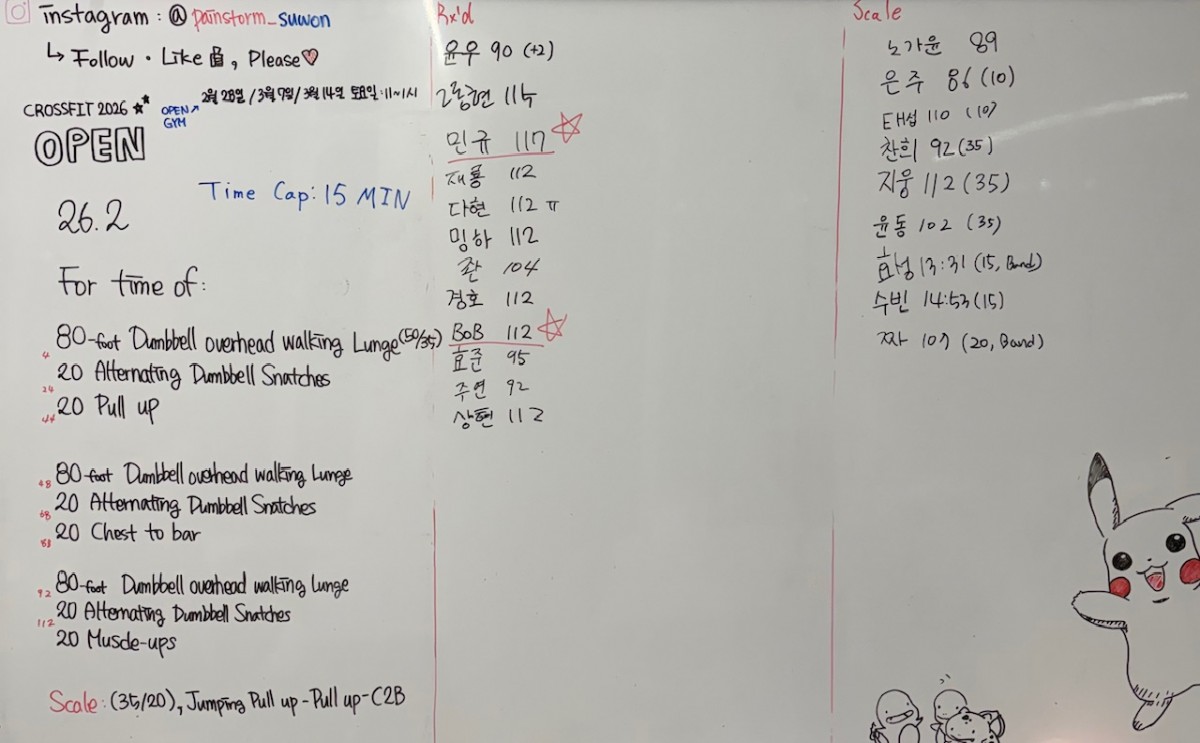 instagram : @ painstorm_suwon
↳ Follow · Like, Please♡
CROSSFIT 2026 ★★
OPEN
OPEN GYM
2월 28일 / 3월 7일 / 3월 14일 토요일 : 11~1시
26.2
Time Cap: 15 MIN
For time of:
80-foot Dumbbell overhead walking Lunge (50/35)
4
20 Alternating Dumbbell Snatches
24
20 Pull up
44
80-foot Dumbbell overhead walking Lunge
48
20 Alternating Dumbbell Snatches
68
20 Chest to bar
88
80-foot Dumbbell overhead walking Lunge
92
20 Alternating Dumbbell Snatches
112
20 Muscle-ups
Scale: (35/20), Jumping Pull up - Pull up - C2B
Rx'd
윤우 90 (+2)
115
민규 117 ☆
재룡 112
다현 112 π
밍하 112
104
경호 112
BoB 112 ☆
효준 95
주연 92
상현 112
Scale
노가윤 89
은주 86 (10)
태섭 110 (10)
찬희 92 (35)
지웅 112 (35)
윤동 102 (35)
효성 13:31 (15, Band)
수빈 14:53 (15)
짜 107 (20, Band)